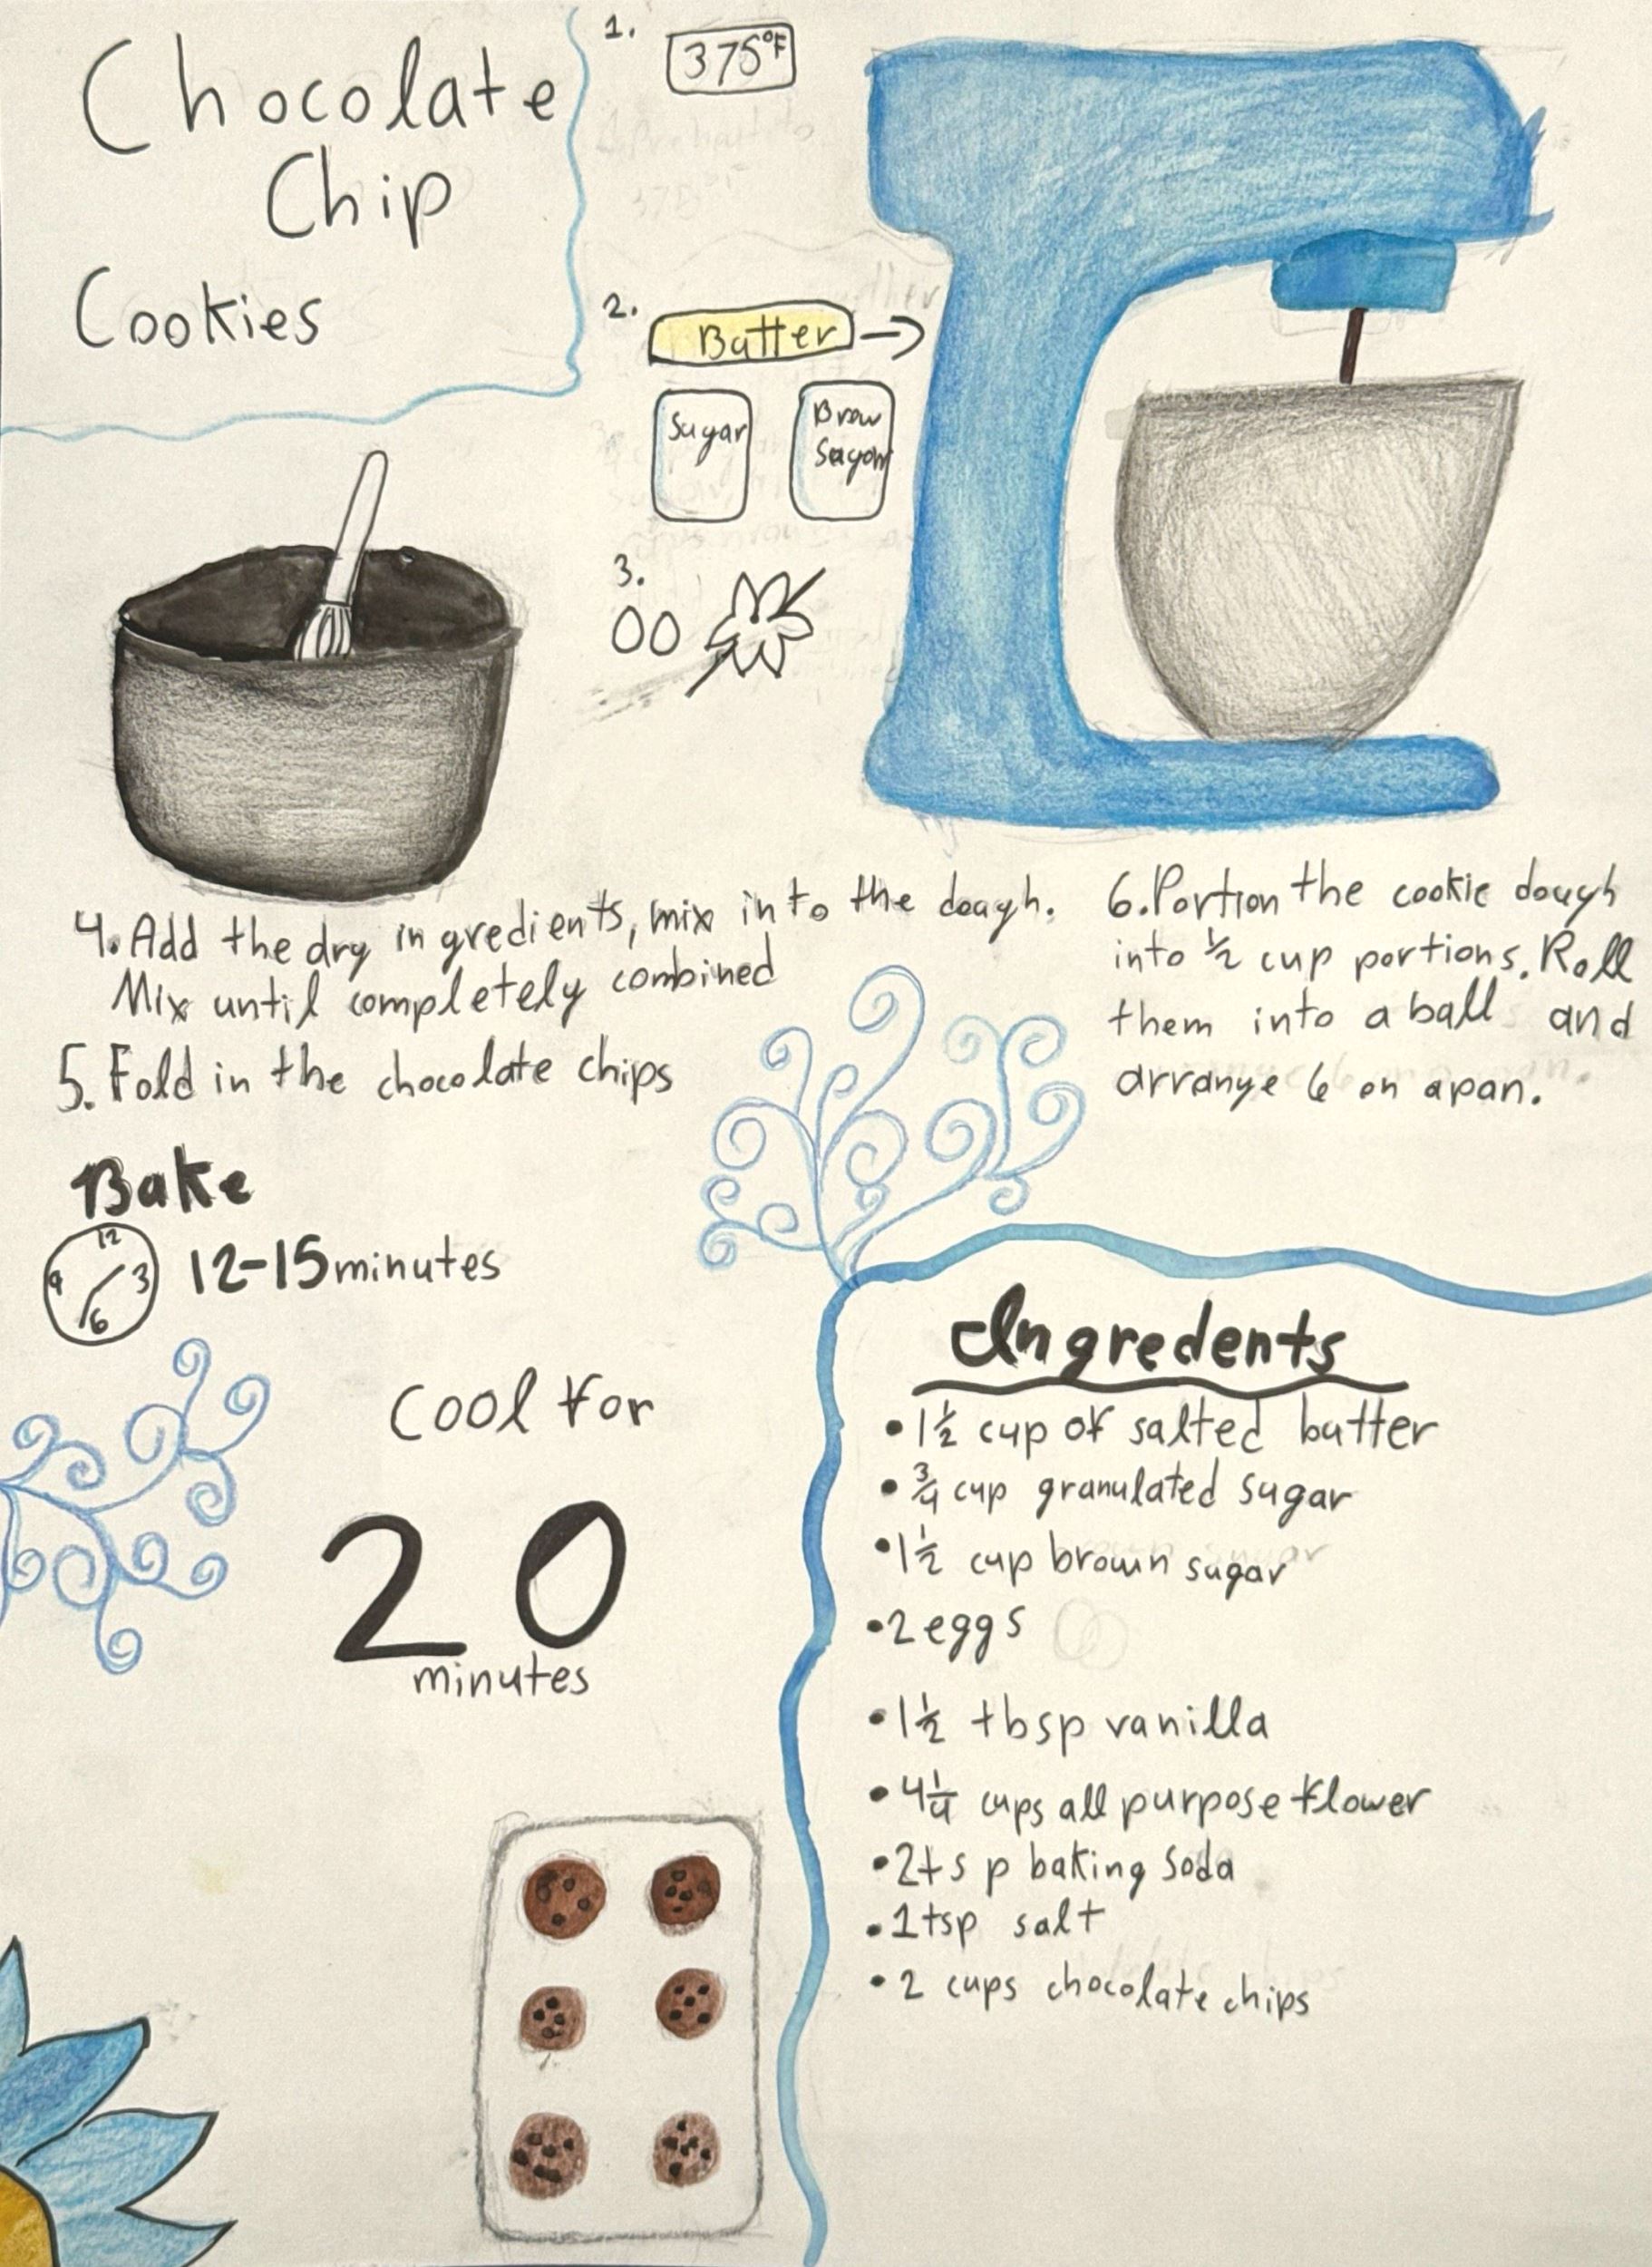 Chocolate
Chip
Cookies
1.
375°F
2.
Butter
Sugar
Brow
Sugar
3.
4. Add the dry ingredients, mix into the dough.
Mix until completely combined
5. Fold in the chocolate chips
6. Portion the cookie dough
into 1/2 cup portions. Roll
them into a ball and
arrange 6 on a pan.
Bake
12
9 3
6
12-15 minutes
Cool for
20
minutes
Ingredents
• 1 1/2 cup of salted butter
• 3/4 cup granulated sugar
• 1 1/2 cup brown sugar
• 2 eggs
• 1 1/2 tbsp vanilla
• 4 1/4 cups all purpose flower
• 2 tsp baking soda
• 1 tsp salt
• 2 cups chocolate chips